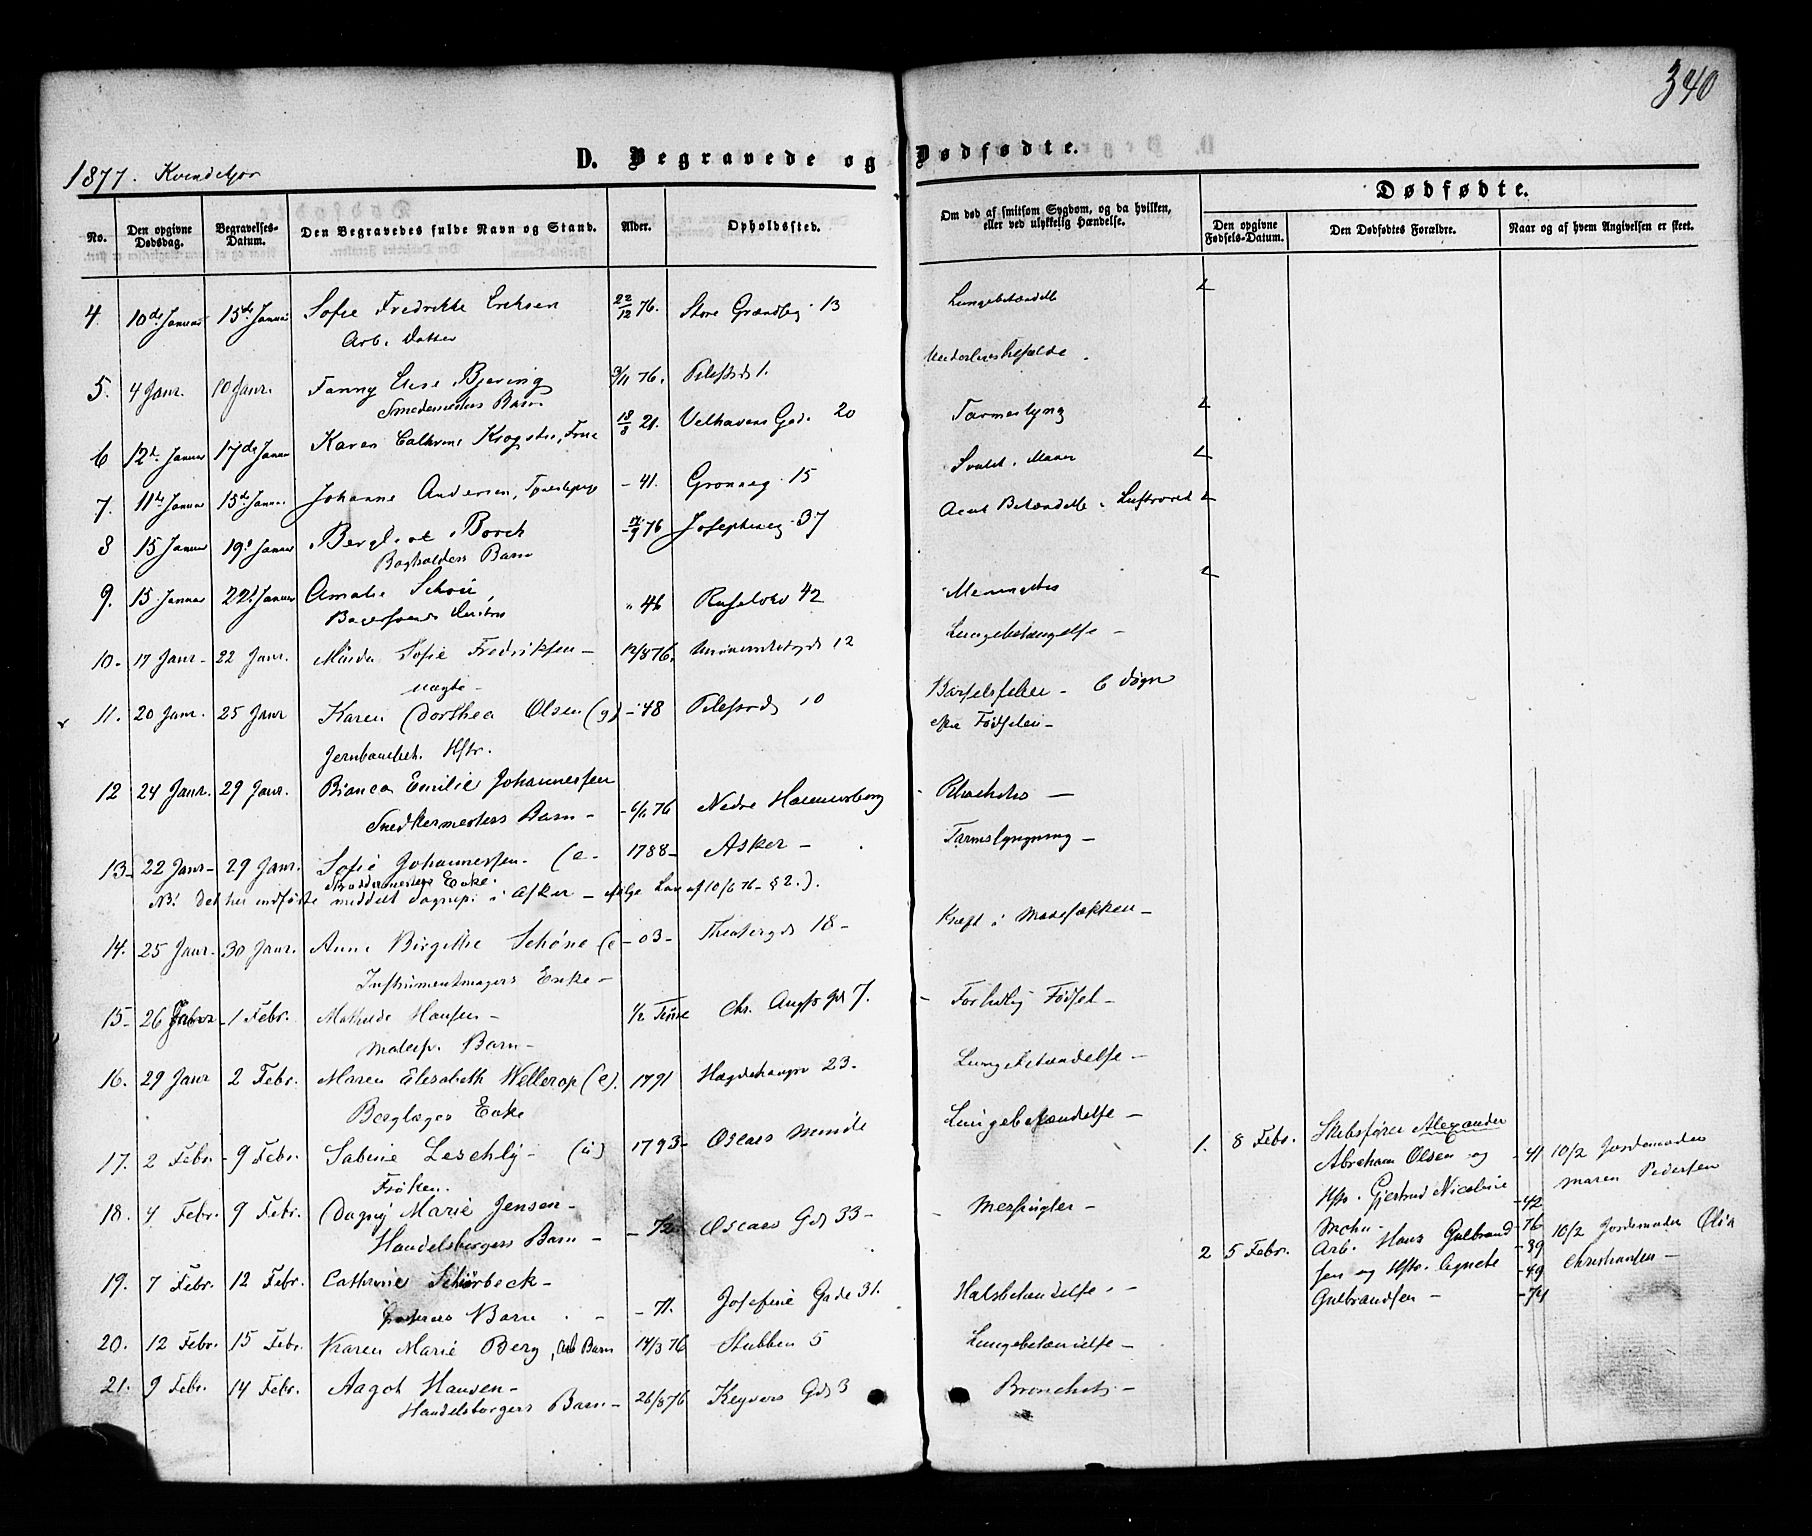 340
1877. Kvindekjøn
D. Begravede og Dødfødte.
No. Den opgivne Dødsdag. Begravelses-Datum. Den Begravedes fulde Navn og Stand. Alder. Opholdssted. Om død af smitsom Sygdom, og da hvilken, eller ved ulykkelig Hændelse. Dødfødte.
Den opgivne Fødsels-Datum. Den Dødfødtes Forældre. Naar og af hvem Angivelsen er skeet.
4. 10de Januar 15de Januar Sofie Fredrikke Eriksen 22/12 76. Store Grændseg 13 Lungebetændelse
Arb. Datter
5. 4 Janr. 10 Janr. Fanny Elise Bjering 3/11 76. Pilestrd 1.
Smedemesters Barn
6 12te Januar 17de Januar Karen Cathrine Krogstie, Frue 18/8 21. Velhavens Gad. 20 Tarmeslyng
7. 11te Januar 15de Januar Johanne Andersen, - 41. Grønneg. 15
8 15 Januar 19de Januar Bergliot Borch 76 Josephineg. 37 Acut Betændelse i Luftrøret
Bogholders Barn
9. 15 Januar 22de Januar Amalie Schou, " 46 Ruseløkv 42 Meningitis
10. 17 Janr. 22 Janr. Sofie Fredriksen - 12/8 76. Universitetsgd 12 Lungebetændelse -
uægte -
11. 20 Janr. 25 Janr Karen Dorthea Olsen (g) - 48 Pilestrd. 10 Barselfeber - 6 døgn
Jernbanebet. Hstr. efter Fødselen -
12 24 Janr. 29 Janr. Bianca Emilie Johannessen
Snedkermesters Barn - 6/6 76 Nedre Hammersborg -
13 22 Janr. 29 Janr. Sofie Johannessen. (e. 1788 - Asker - Tarmslyngning -
Enke.
NB! Det her indførte meddelt Sognep. i Asker - ifølge Lov af 10/6 76 - § 2.).
14. 25 Janr. 30 Janr. Anne Birgitte Schøne (e - 03 - Theatergd 18 - Kræft i Mavesækken -
Instrumentmagers Enke -
15 - 26 Janr - 1 Febr. Mathilde Hansen - 1/2 Time Chr. Augsts Gd 7. Fortidlig Fødsel -
Malersv. Barn -
16. 29 Janr 2 Febr. Maren Elisabeth Wellerop (e). 1791 Hægdehaugsv 23. Lungebetændelse -
Berglæges Enke
17. 2 Febr. 9 Febr. Sabine Leschly - (u) 1793 - Oscars Minde Lungebetændelse -
Frøken.
18. 4 Febr. 9 Febr. Dagny Marie Jensen - - 72 Oscars Gd. 33 - Meslinger -
Handelsborgers Barn -
19. 7 Febr. 12 Febr. Cathrine Schiørbeck - - 71. Josefine Gade 31. Halsbetændelse. -
Barn
20. 12 Febr. 15 Febr. Karen Marie Berg, Arb Barn 14/3 76 Stubben 5 Lungebetændelse -
21. 9 Febr. 14 Febr. Aagot Hansen - 26/8 76 Keysers Gd 3 Bronchitis -
Handelsborgers Barn -
1. 8 Febr. Skibsfører Alexander
Abraham Olsen og - 41 10/2 Jordemoder
Hstr. Gjertrud Nicoline - 42 Maren Pedersen
2 5 Febr. Arb. Hans Gulbrand - 39 10/2 Jordemoder Olia
sen og Hstr. Agnete - 49 Christiansen -
Gulbrandsen -